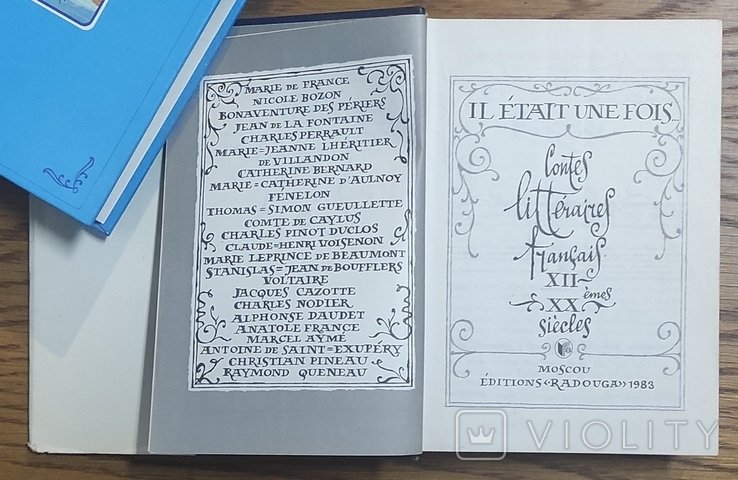 MARIE DE FRANCE
NICOLE BOZON
BONAVENTURE DES PÉRIERS
JEAN DE LA FONTAINE
CHARLES PERRAULT
MARIE=JEANNE LHÉRITIER
DE VILLANDON
CATHERINE BERNARD
MARIE=CATHERINE D'AULNOY
FÉNELON
THOMAS=SIMON GUEULLETTE
COMTE DE CAYLUS
CHARLES PINOT DUCLOS
CLAUDE=HENRI VOISENON
MARIE LEPRINCE DE BEAUMONT
STANISLAS=JEAN DE BOUFFLERS
VOLTAIRE
JACQUES CAZOTTE
CHARLES NODIER
ALPHONSE DAUDET
ANATOLE FRANCE
MARCEL AYMÉ
ANTOINE DE SAINT=EXUPÉRY
CHRISTIAN PINEAU
RAYMOND QUENEAU
IL ÉTAIT UNE FOIS...
Contes
littéraires
français
XII-
XXèmes
siècles
MOSCOU
ÉDITIONS «RADOUGA» 1983
VIOLITY